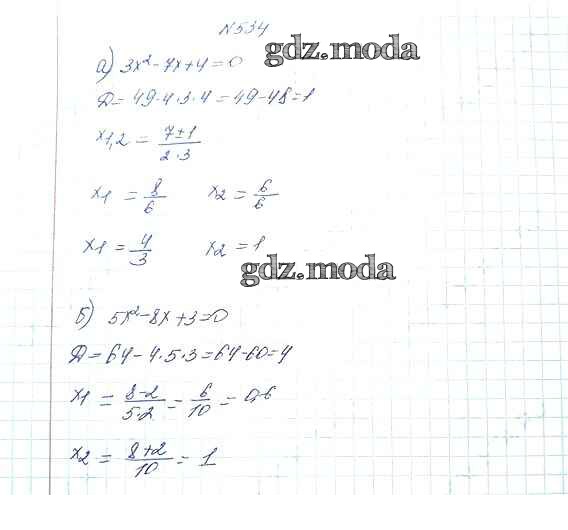 №534
gdz.moda
а) 3x² - 7x + 4 = 0
Д = 49 - 4·3·4 = 49 - 48 = 1
x1,2 = (7±1)/(2·3)
x1 = 8/6   x2 = 6/6
x1 = 4/3   x2 = 1
gdz.moda
б) 5x² - 8x + 3 = 0
Д = 64 - 4·5·3 = 64 - 60 = 4
x1 = (8-2)/(5·2) = 6/10 = 0,6
x2 = (8+2)/10 = 1